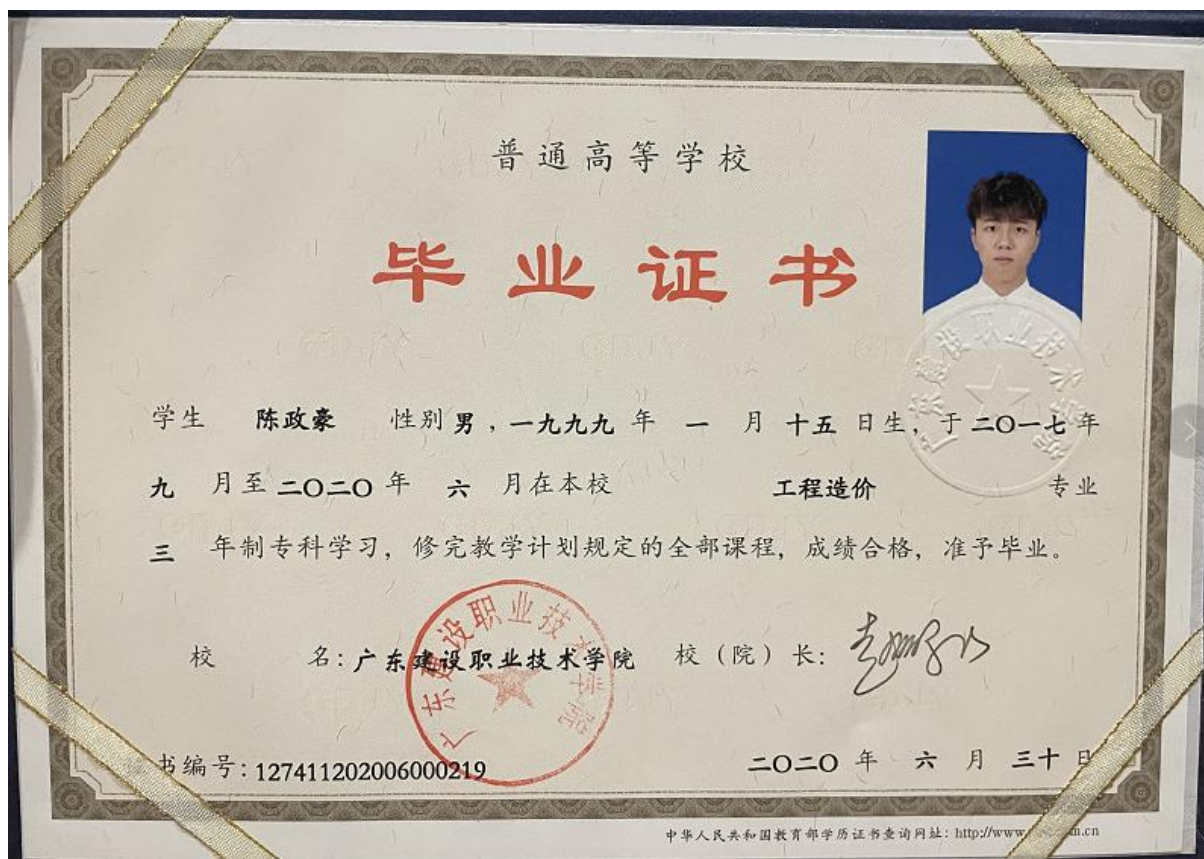 普通高等学校
毕业证书
学生 陈政豪 性别 男，一九九九 年 一 月 十五 日生，于二〇一七年
九 月至 二〇二〇 年 六 月在本校 工程造价 专业
三 年制专科学习，修完教学计划规定的全部课程，成绩合格，准予毕业。
校 名：广东建设职业技术学院 校（院）长：
广东建设职业技术学院
书编号：127411202006000219 二〇二〇 年 六 月 三十 日
中华人民共和国教育部学历证书查询网址：http://www m.cn
广东建设职业技术学院